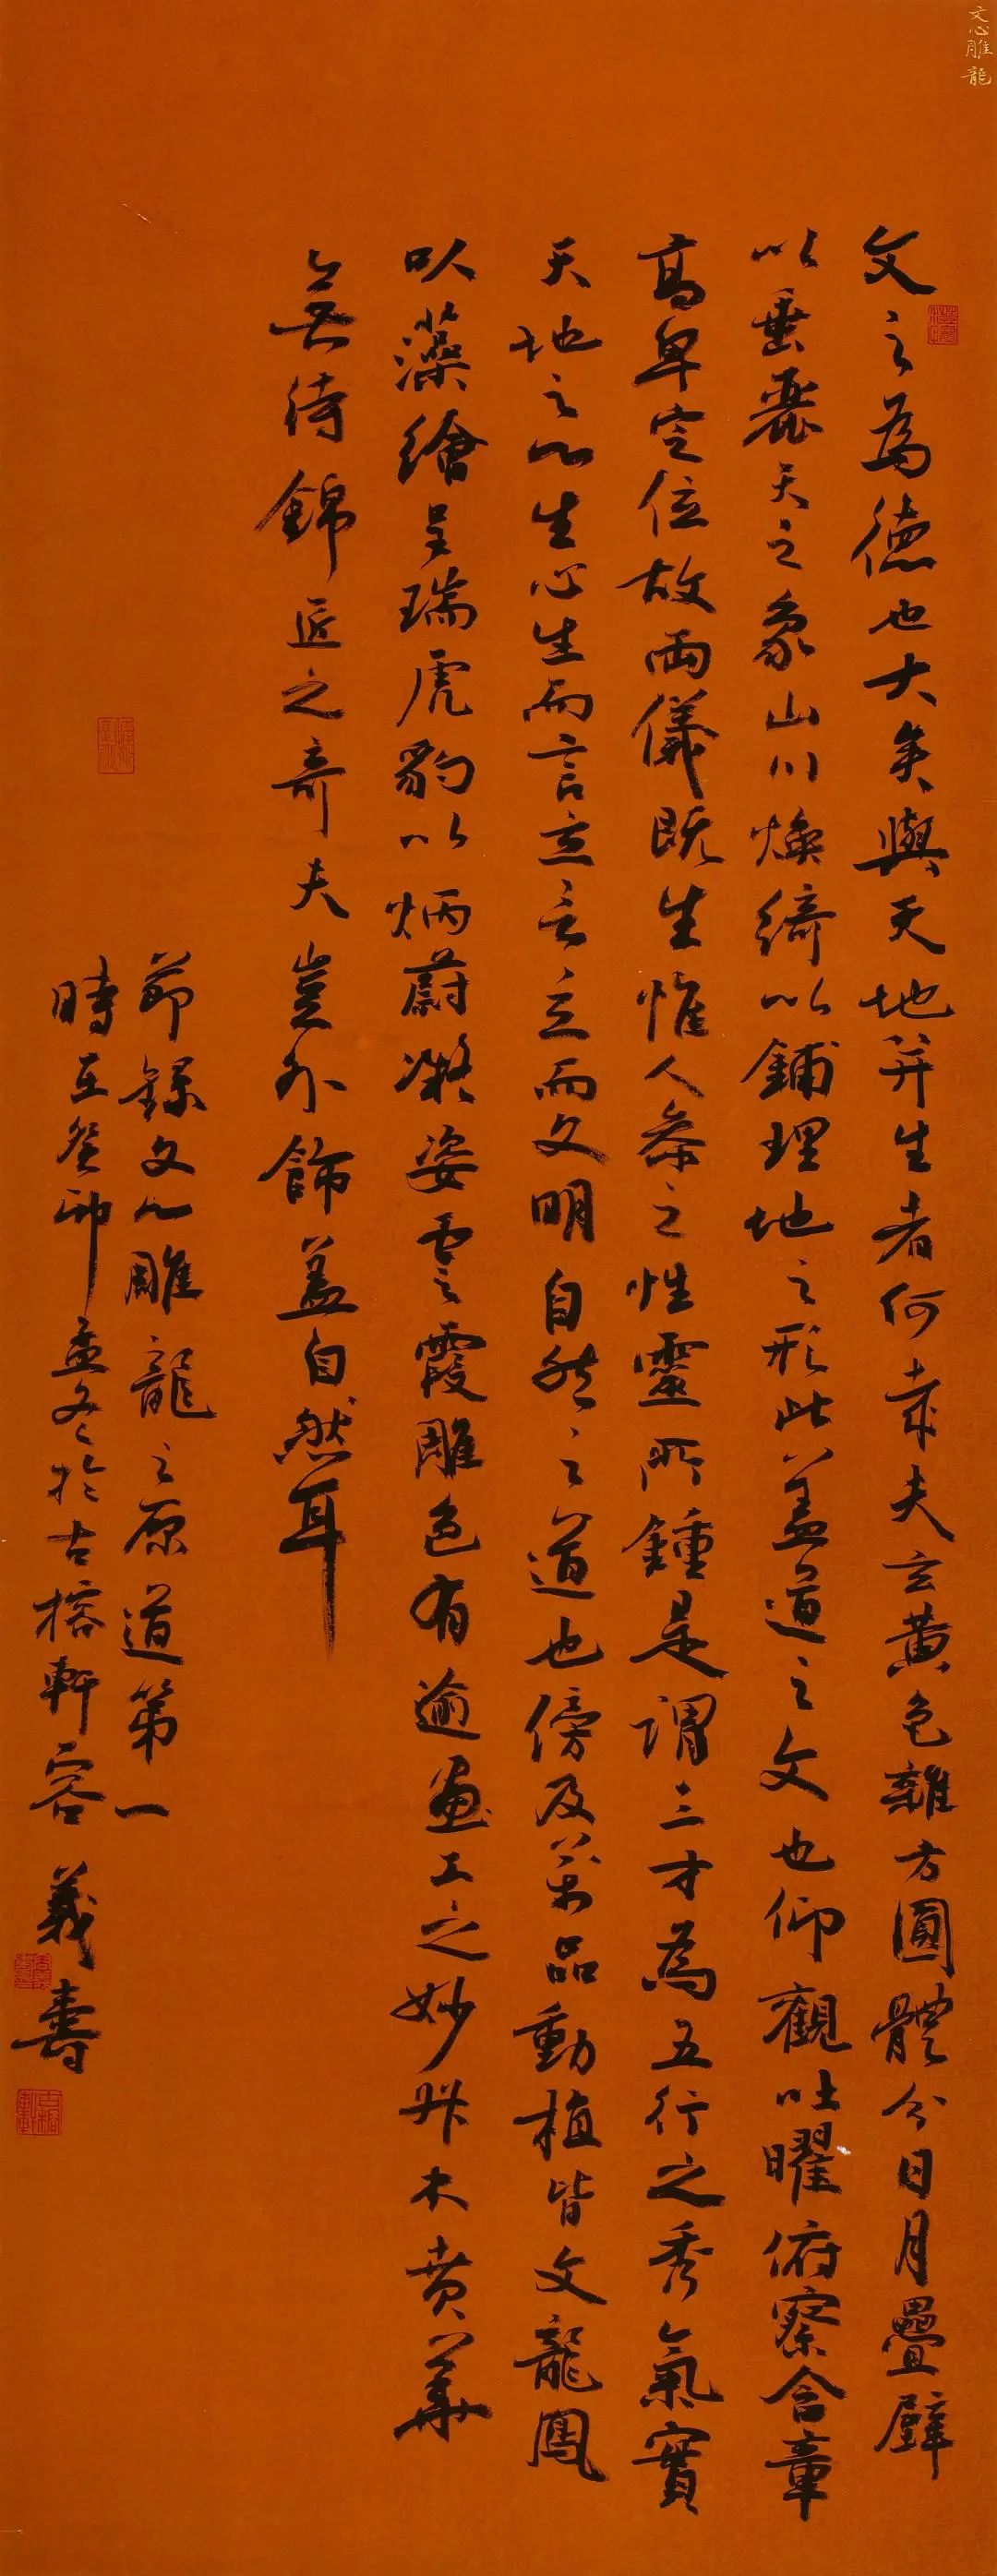 文心雕龍
文之為德也大矣與天地并生者何哉夫玄黃色雜方圓體分日月疊壁
以垂麗天之象山川煥綺以鋪理地之形此蓋道之文也仰觀吐曜俯察含章
高卑定位故兩儀既生惟人參之性靈所鍾是謂三才為五行之秀氣實
天地之心生心生而言立言立而文明自然之道也傍及萬品動植皆文龍鳳
以藻繪呈瑞虎豹以炳蔚凝姿雲霞雕色有逾畫工之妙草木賁華
無待錦匠之奇夫豈外飾蓋自然耳
節錄文心雕龍之原道第一
時在癸卯孟冬於古榕軒容義壽